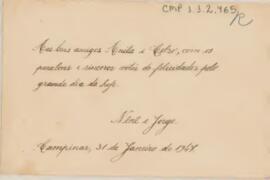 CMP 1.3.2.965
Aos bons amigos Anita e Celso, com os
parabens e sinceros votos de felicidades pelo
grande dia de hoje.
e Jorge
Campinas, 31 de Janeiro de 1948